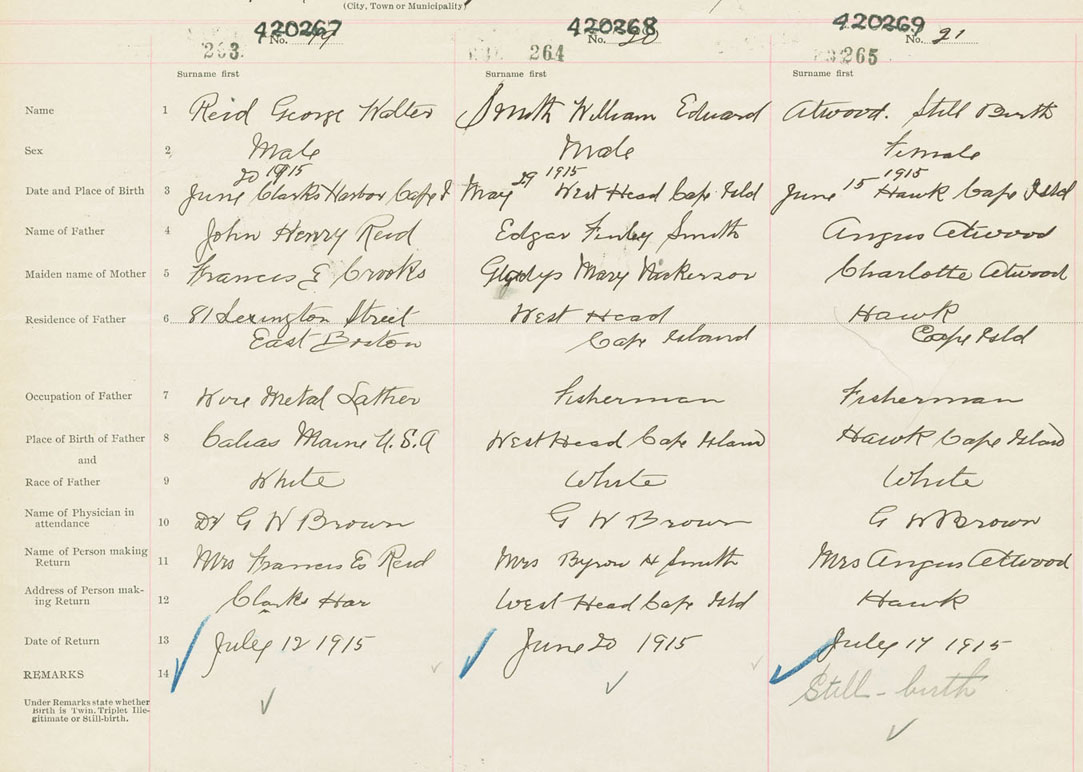 (City, Town or Municipality)
420267 420268 420269
No. 19 No. 20 No. 21
263 264 265
Surname first Surname first Surname first
Name 1 Reid George Walter Smith William Edward Atwood. Still Birth
Sex 2 Male Male Female
20 1915 29 1915 15 1915
Date and Place of Birth 3 June Clarks Harbor Cape I May West Head Cape Isld June Hawk Cape Isld
Name of Father 4 John Henry Reid Edgar Finley Smith Angus Atwood
Maiden name of Mother 5 Francis E Crooks Gladys Mary Nickerson Charlotte Atwood
Residence of Father 6 81 Lexington Street West Head Hawk
East Boston Cape Island Cape Isld
Occupation of Father 7 Wire Metal Lather Fisherman Fisherman
Place of Birth of Father 8 Calias Maine U.S.A West Head Cape Island Hawk Cape Island
and
Race of Father 9 White White White
Name of Physician in
attendance 10 Dr G W Brown G W Brown G W Brown
Name of Person making
Return 11 Mrs Francis E Reid Mrs Byron H Smith Mrs Angus Atwood
Address of Person mak-
ing Return 12 Clarks Har West Head Cape Isld Hawk
Date of Return 13 July 12 1915 June 20 1915 July 17 1915
REMARKS 14 Still-birth
Under Remarks state whether
Birth is Twin, Triplet Ille-
gitimate or Still-birth.